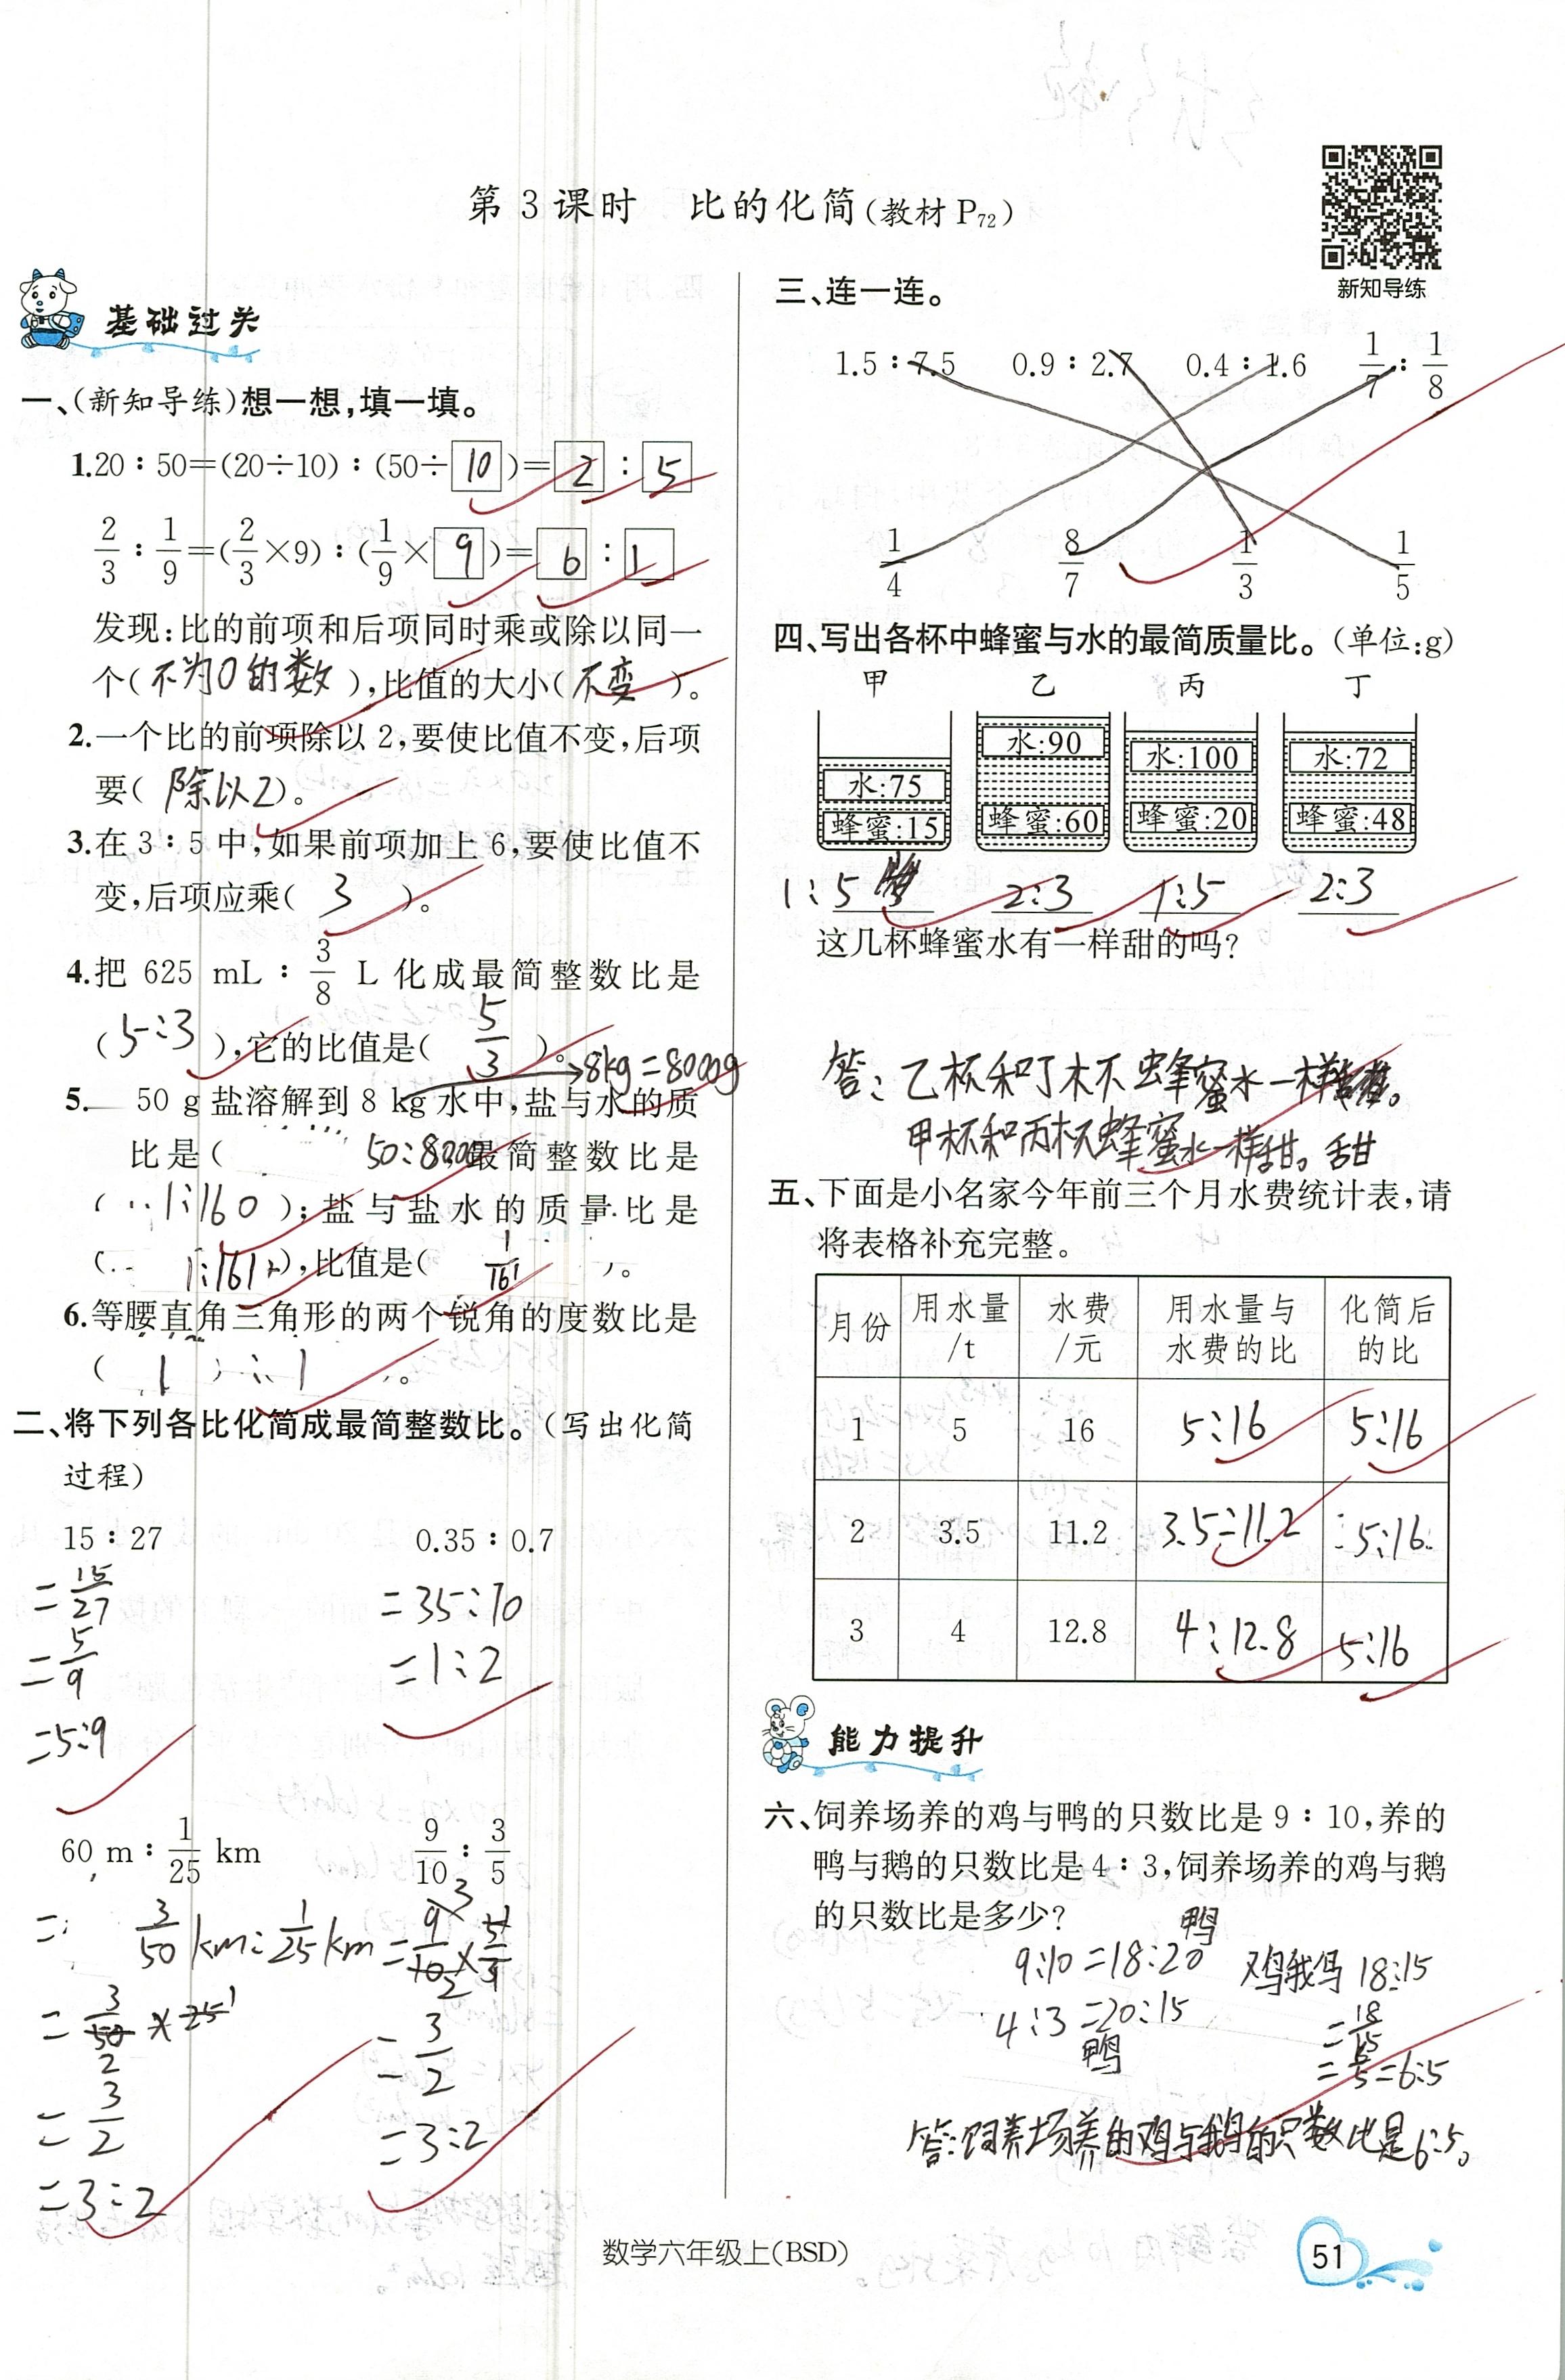 第3课时 比的化简(教材P72)
新知导练
基础过关
一、(新知导练)想一想,填一填。
1.20∶50=(20÷10)∶(50÷10)=2∶5
2/3∶1/9=(2/3×9)∶(1/9×9)=6∶1
发现:比的前项和后项同时乘或除以同一
个(不为0的数),比值的大小(不变)。
2.一个比的前项除以2,要使比值不变,后项
要(除以2)。
3.在3∶5中,如果前项加上6,要使比值不
变,后项应乘(3)。
4.把 625 mL∶3/8 L 化成最简整数比是
(5∶3),它的比值是(5/3)。
8kg=8000g
5. 50 g盐溶解到8 kg水中,盐与水的质
比是(50∶8000最简整数比是
(1∶160);盐与盐水的质量比是
(1∶161),比值是(1/161)。
6.等腰直角三角形的两个锐角的度数比是
(1∶1。
二、将下列各比化简成最简整数比。(写出化简
过程)
15∶27
=15/27
=5/9
=5∶9
0.35∶0.7
=35∶70
=1∶2
60 m∶1/25 km
=3/50km∶1/25km
=3/50×25
2 1
=3/2
=3∶2
9/10∶3/5
=9/10×5/3
3 2 1
=3/2
=3∶2
三、连一连。
1.5∶7.5 0.9∶2.7 0.4∶1.6 1/7∶1/8
1/4 8/7 1/3 1/5
四、写出各杯中蜂蜜与水的最简质量比。(单位:g)
甲 乙 丙 丁
水:75 水:90 水:100 水:72
蜂蜜:15 蜂蜜:60 蜂蜜:20 蜂蜜:48
1∶5 2∶3 1∶5 2∶3
这几杯蜂蜜水有一样甜的吗?
答:乙杯和丁杯蜂蜜水一样甜。
甲杯和丙杯蜂蜜水一样甜。甜
五、下面是小名家今年前三个月水费统计表,请
将表格补充完整。
月份 用水量/t 水费/元 用水量与水费的比 化简后的比
1 5 16 5∶16 5∶16
2 3.5 11.2 3.5∶11.2 5∶16
3 4 12.8 4∶12.8 5∶16
能力提升
六、饲养场养的鸡与鸭的只数比是9∶10,养的
鸭与鹅的只数比是4∶3,饲养场养的鸡与鹅
的只数比是多少?
鸭
9∶10=18∶20
4∶3=20∶15
鸭
鸡鹅 18∶15
=18/15
=6/5=6∶5
答:饲养场养的鸡与鹅的只数比是6∶5。
数学六年级上(BSD)
51